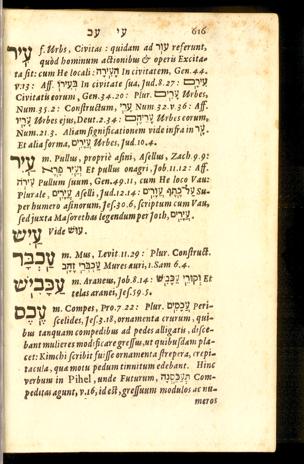 עי עכ 616
עִיר f. Urbs, Civitas: quidam ad עוּר referunt,
quòd hominum actionibus & operis Excita-
ta sit: cum He locali: הָעִירָה In civitatem, Gen. 44.
v. 13: Aff. בְּעִירוֹ In civitate sua, Jud. 8.27: עִירָם
Civitatis eorum, Gen. 34.20: Plur. עָרִים Urbes,
Num. 35.2: Constructum, עָרֵי Num 32. v. 36: Aff.
עָרָיו Urbes ejus, Deut. 2.34: עָרֵיהֶם Urbes eorum,
Num. 21.3. Aliam significationem vide infra in עָר.
Et alia forma, עֲיָרִים Urbes, Jud. 10.4.
עַיִר m. Pullus, propriè asini, Asellus, Zach. 9.9:
וְעַיִר פֶּרֶא Et pullus onagri, Job. 11.12: Aff.
עִירֹה Pullum suum, Gen. 49.11, cum He loco Vau:
Plurale, עֲיָרִים Aselli, Jud. 12.14: עַל־כֶּתֶף עֲוָרִים Su-
per humero asinorum, Jes. 30.6, scriptum cum Vau,
sed juxta Masorethas legendum per Joth, עֲיָרִים.
עַיִשׁ Vide עוּשׁ.
עַכְבָּר m. Mus, Levit. 11.29: Plur. Construct.
עַכְבְּרֵי זָהָב Mures auri, 1. Sam 6.4.
עַכָּבִישׁ m. Araneus, Job. 8.14: וְקוּרֵי עַכָּבִישׁ Et
telas aranei, Jes. 59.5.
עֶכֶס m. Compes, Pro. 7 22: Plur. עֲכָסִים Peri-
scelides, Jes. 3.18, ornamenta crurum, qui-
bus tanquam compedibus ad pedes alligatis, disce-
bant mulieres modificare gressus, ut quibusdam pla-
cet: Kimchi scribit fuisse ornamenta strepera, crepi-
tacula, qua motu pedum tinnitum edebant. Hinc
verbum in Pihel, unde Futurum, תְּעַכַּסְנָה Com-
peditas agunt, v. 16, id est, gressuum modulos ac nu-
meros